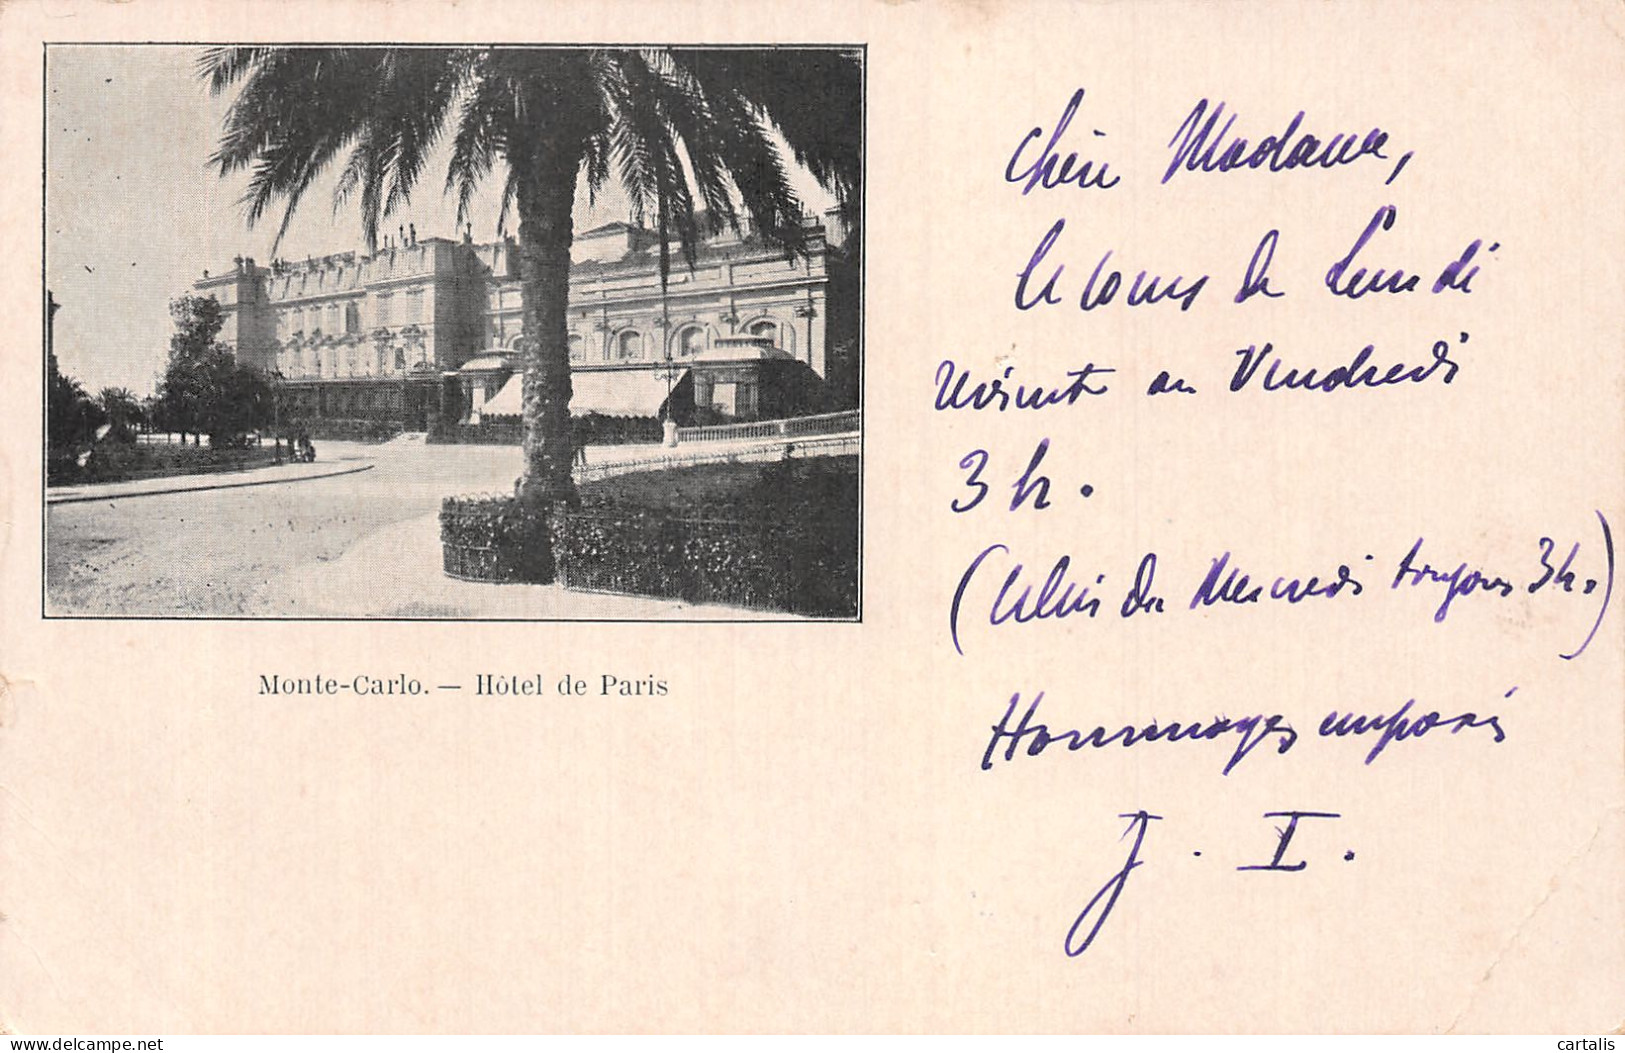 Monte-Carlo. — Hôtel de Paris
Chère Madame,
le cours de Lundi
revient au Vendredi
3 h.
(celui du Mercredi toujours 3h.)
Hommages empressés
J. I.
delcampe.net
cartalis